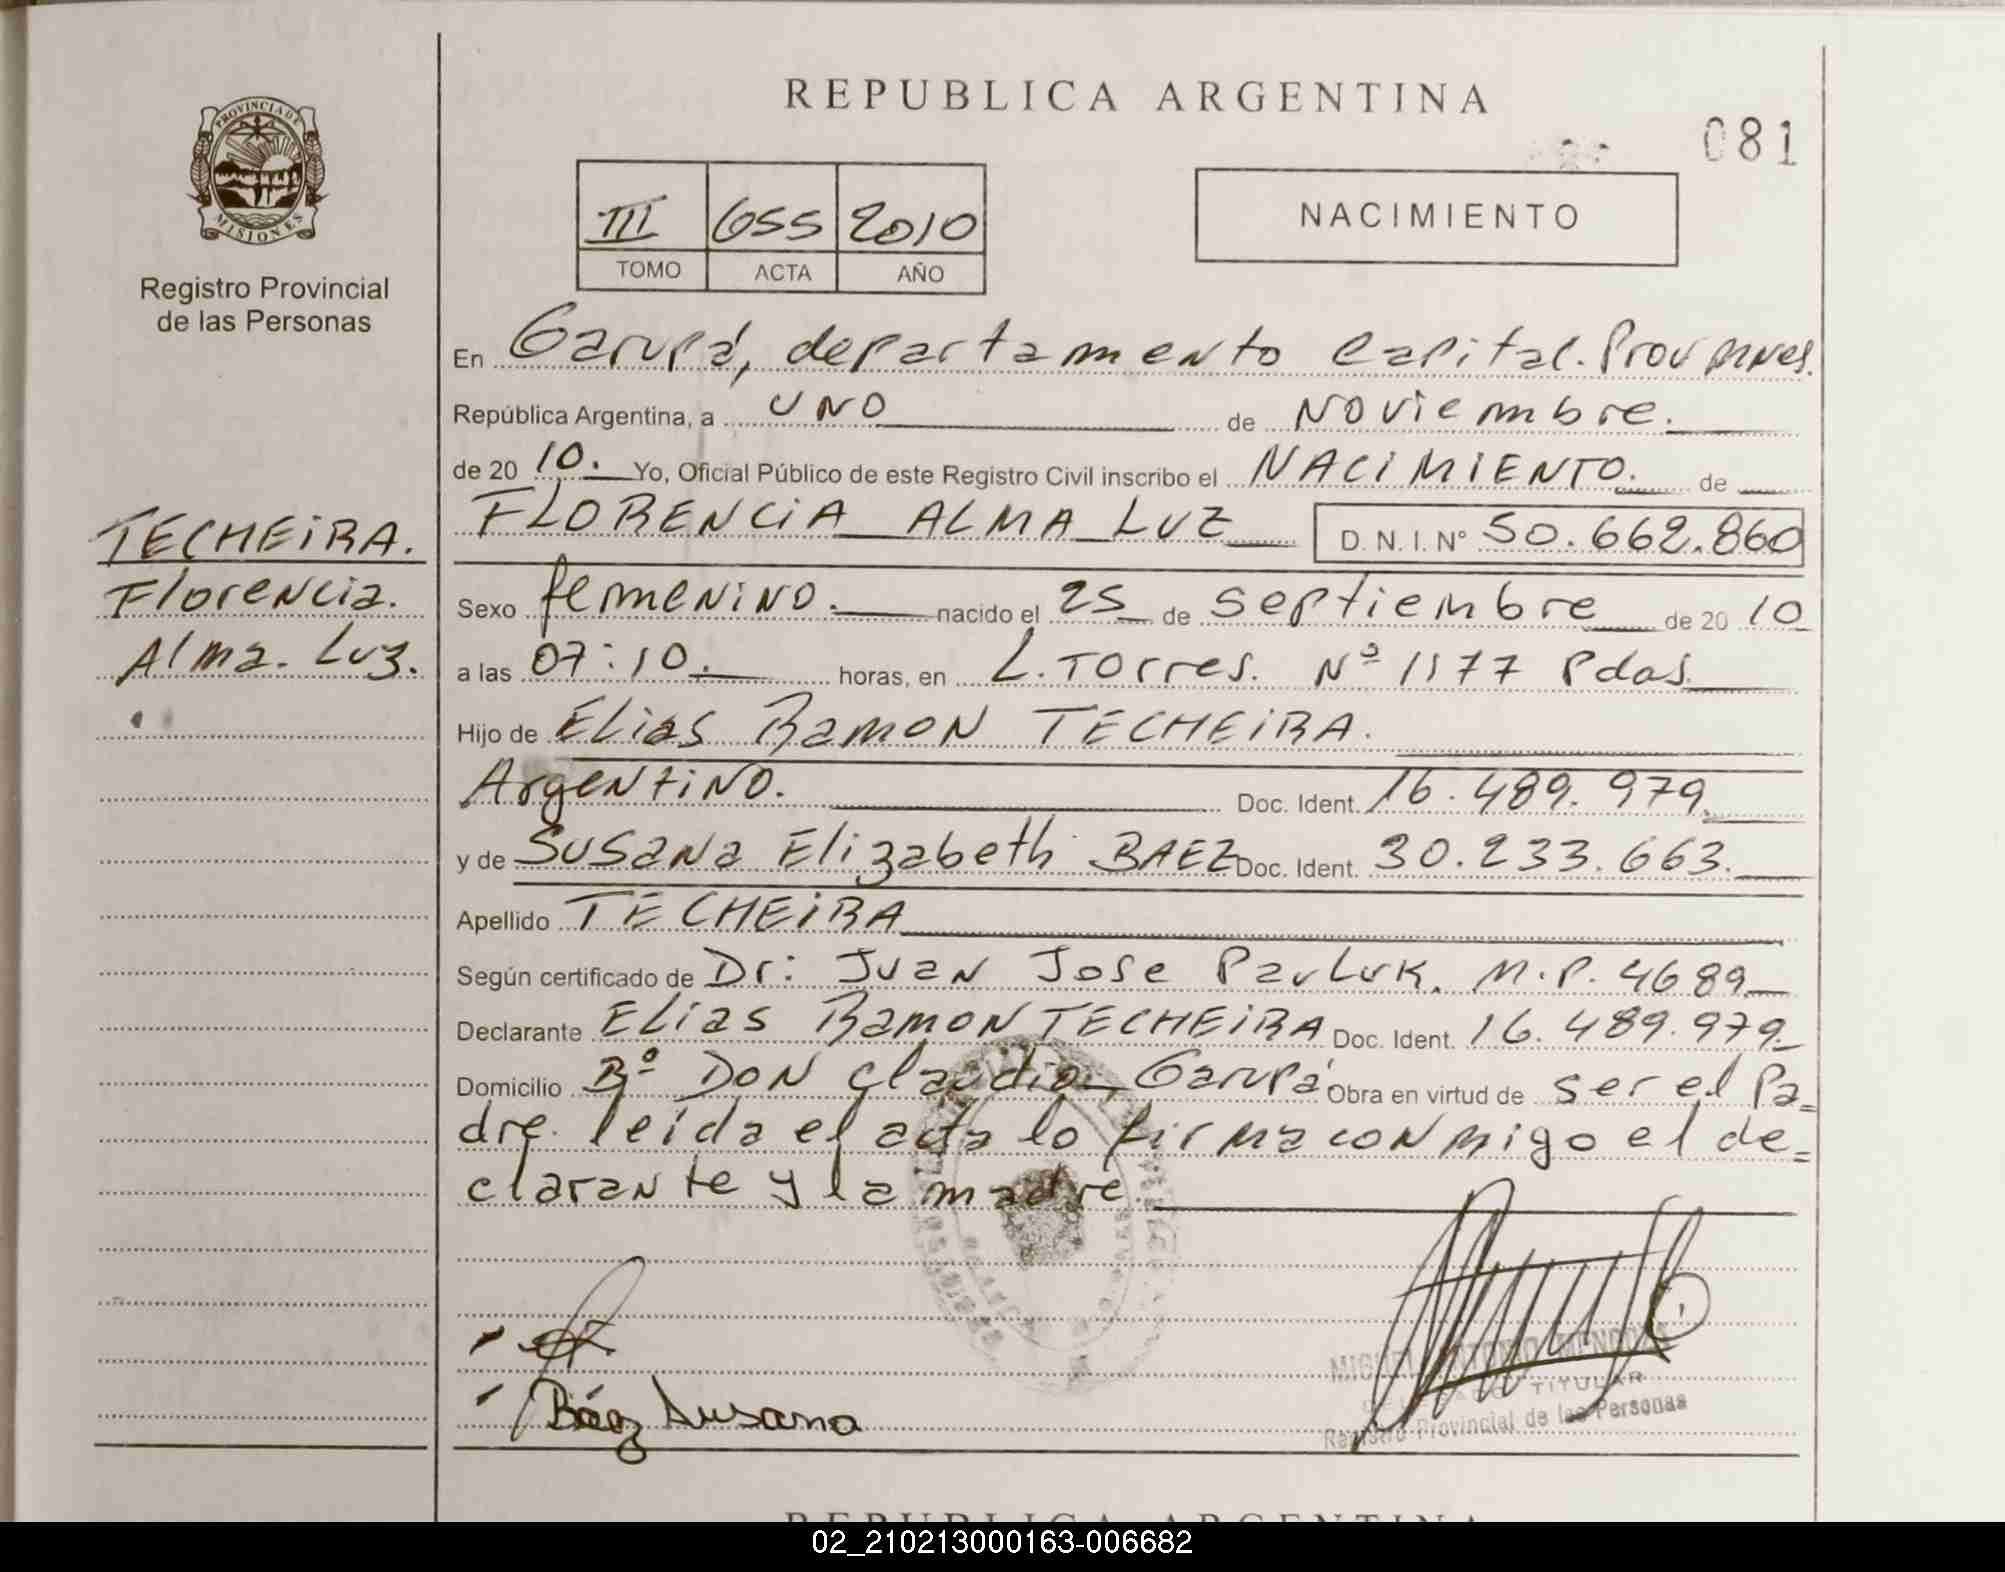 REPUBLICA ARGENTINA
081
PROVINCIA DE
MISIONES
Registro Provincial
de las Personas
III 655 2010
TOMO ACTA AÑO
NACIMIENTO
En Garupá, departamento Capital. Prov mnes.
República Argentina, a UNO de Noviembre.
de 20 10. Yo, Oficial Público de este Registro Civil inscribo el NACIMIENTO. de
FLORENCIA ALMA LUZ D. N. I. Nº 50.662.860
TECHEIRA.
Florencia.
Alma. Luz.
Sexo femenino. nacido el 25 de Septiembre de 20 10
a las 07:10. horas, en L. Torres. Nº 1177 Pdas.
Hijo de Elias Ramon TECHEIRA.
Argentino. Doc. Ident. 16.489.979.
y de Susana Elizabeth BAEZ Doc. Ident. 30.233.663.
Apellido TECHEIRA
Según certificado de Dr: Juan Jose Pavluk. M.P. 4689
Declarante Elias Ramon TECHEIRA Doc. Ident. 16.489.979.
Domicilio Bº DON Claudio, Garupá Obra en virtud de ser el Pa=
dre. leída el acta lo firma conmigo el de=
clarante y la madre.
Báez Susana
MIGUEL ANTONIO
TITULAR
Registro Provincial de las Personas
REPUBLICA ARGENTINA
02_210213000163-006682